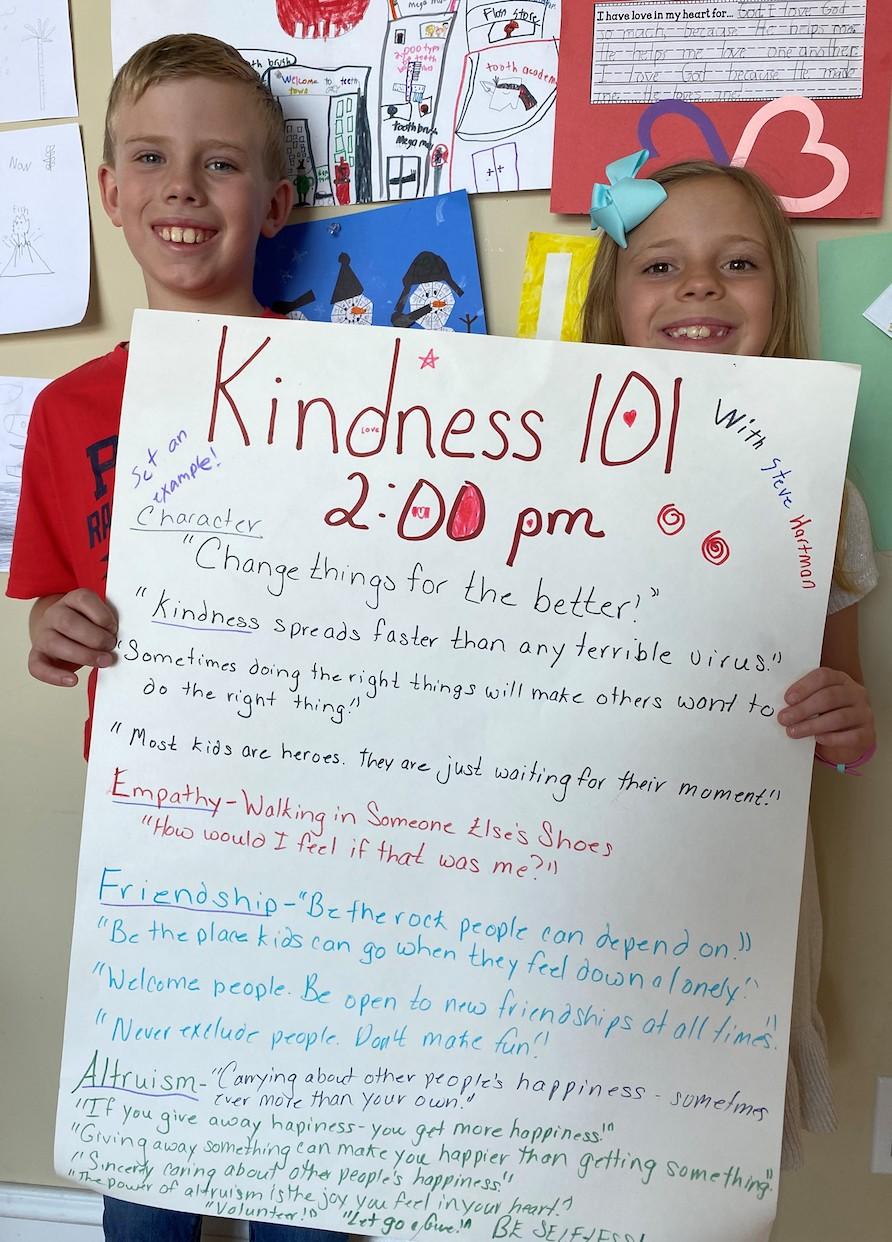 I have love in my heart for... God I love God
so much, because He helps me.
He helps me love one another.
I love God because He made
me. He loves me.
Mega ma
Floss store
tooth brush
Welcome to teeth
town
2,000 typs
of teeth
tooth academ
toothbrush
Mega ma
Now
Kindness 101
LOVE
With Steve Hartman
Set an
example!
2:00 pm
Character
"Change things for the better!"
"Kindness spreads faster than any terrible virus."
"Sometimes doing the right things will make others want to
do the right thing!"
"Most kids are heroes. They are just waiting for their moment!"
Empathy-Walking in Someone Else's Shoes
"How would I feel if that was me?"
Friendship-"Be the rock people can depend on."
"Be the place kids can go when they feel down alonely."
"Welcome people. Be open to new friendships at all times."
"Never exclude people. Don't make fun!"
Altruism-"Carrying about other people's happiness - sometimes
ever more than your own."
"If you give away hapiness-you get more happiness!"
"Giving away something can make you happier than getting something"
"Sincerly caring about other people's happiness."
"The power of altruism is the joy you feel in your heart!"
"Volunteer!" "Let go & Give!" BE SELFLESS!